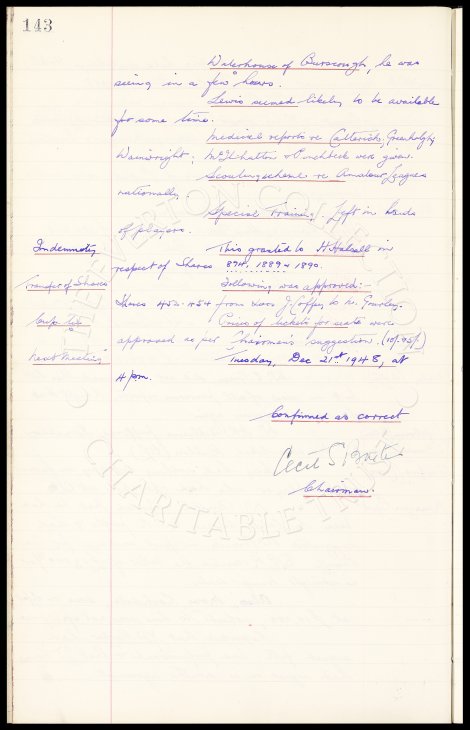 143
Waterhouse of Burscough, he was
seeing in a few hours.
Lewis seemed likely to be available
for some time.
Medical reports re Catterick, Greenhalgh,
Wainwright, McIlhatton & Pinchbeck were given.
Scouting scheme re Amateur Leagues
nationally.
Special Training. Left in hands
of players.
Indemnity This granted to H. Halsall in
respect of Shares 874, 1889 & 1890.
Transfer of Shares Following was approved:-
Shares 452-454 from J. Coffey to
Cup Tie Prices of tickets for were
approved as per Chairman's suggestion.
next meeting Tuesday, Dec 21st 1948, at
4 pm.
Confirmed as correct
Cecil S Baxter
Chairman.
THE EVERTON COLLECTION
CHARITABLE TRUST